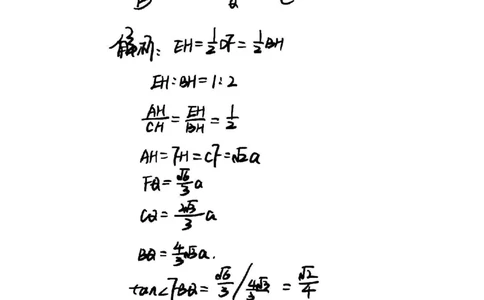 B Q C
解析: EH=½DF=½BH
EH:BH=1:2
AH/CH=EH/BH=1/2
AH=FH=CF=√2a
FQ=√6/3 a
CQ=2√3/3 a
BQ=4/3√3a.
tan∠FBQ=√6/3 / 4√3/3 = √2/4